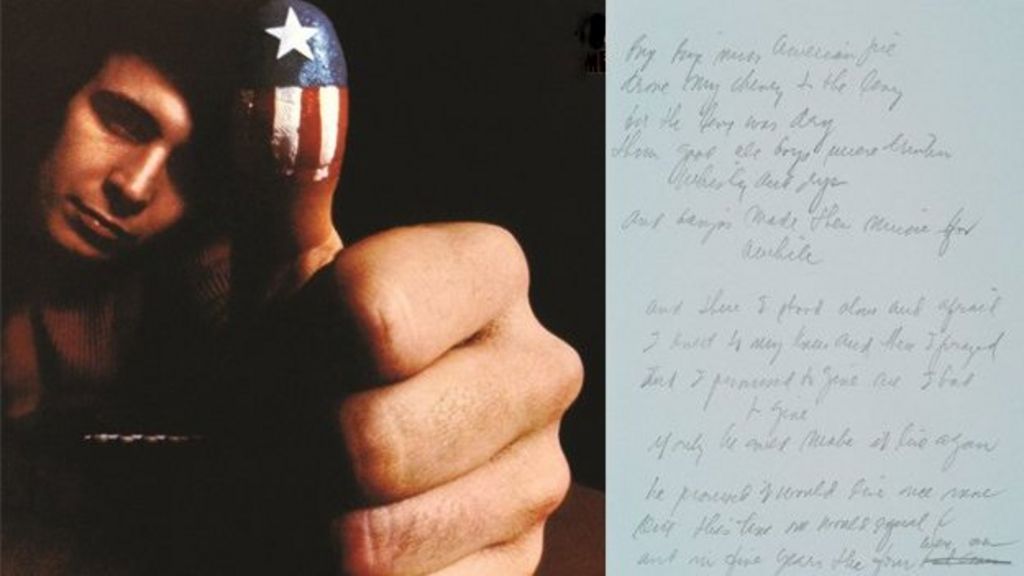 Bye bye miss American pie
Drove my chevey to the levy
but the levy was dry
them good ole boys were drinkin
whisky and rye
And
made their music for
awhile
and there I stood alone and afraid
I knelt to my knees and there I prayed
And I promised to give all I had
to give
If only he could make it live again
he promised it would live once more
But this time one would equal
and in five years the four